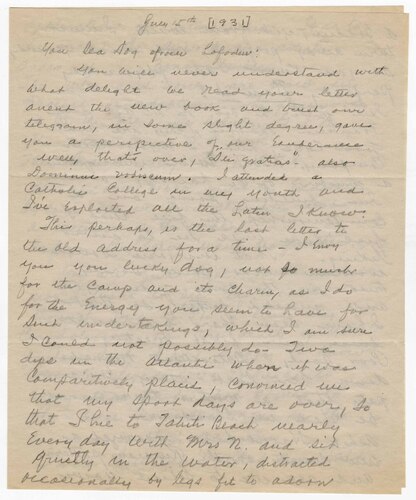 July 15th [1931]
You Sea Dog from Lofoden!
You will never understand with
what delight we read your letter
anent the new book and trust our
telegram, in some slight degree, gave
you a perspective of our
well, that's over, "Deo gratias" - also
Dominus vobiscum. I attended a
Catholic College in my youth and
I've exploited all the Latin I know
This perhaps, is the last letter to
the old address for a time - I Envy
you you lucky dog, not so much
for the Camp and its Charm, as I do
for the Energy you seem to have for
such undertakings, which I am sure
I could not possibly do - Two
dips in the Atlantic when it was
Comparitively placid, Convinced me
that my sport days are over, So
that I hie to Tahiti Beach nearly
Every day with Mrs N. and sit
quietly in the water, distracted
occasionally by legs fit to adorn